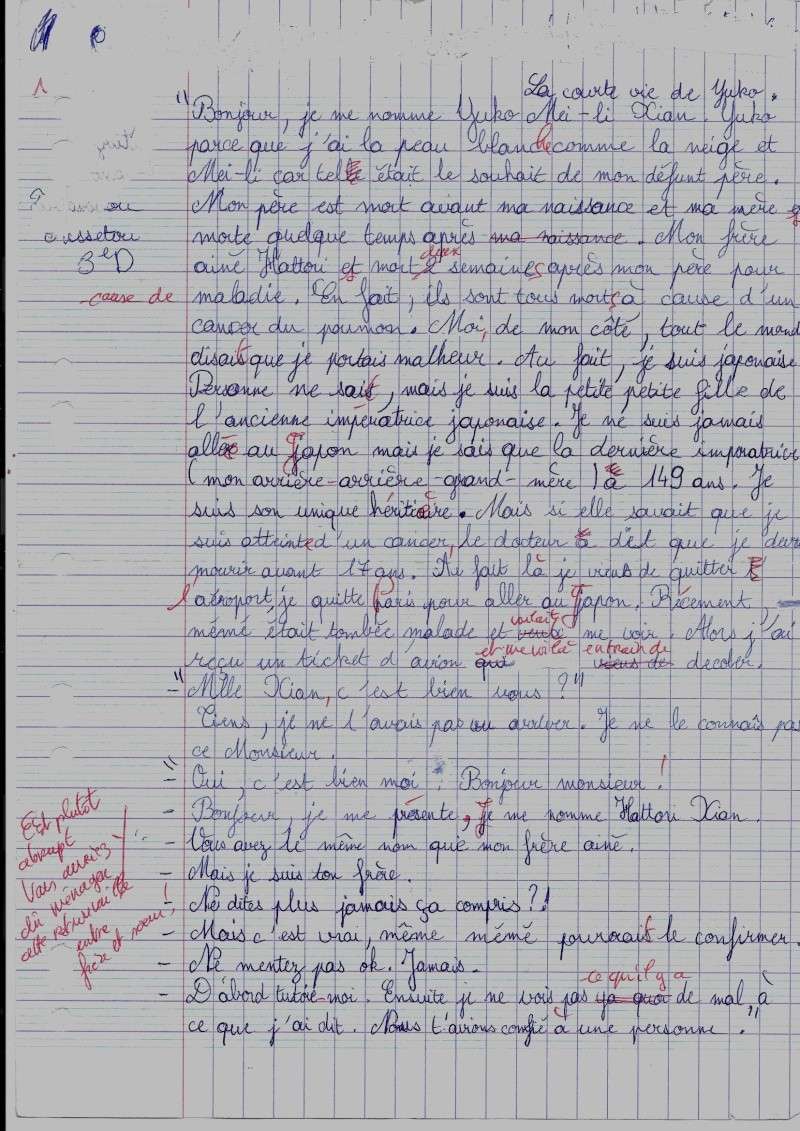 La courte vie de Yuko.
1
"Bonjour, je me nomme Yuko Mei-li Xian. Yuko
parce que j'ai la peau blanche comme la neige et
Mei-li car tel était le souhait de mon défunt père.
Mon père est mort avant ma naissance et ma mère
morte quelque temps après ma naissance. Mon frère
3eD
deux
ainé Hattori est mort 2 semaines après mon père pour
cause de
maladie. En fait, ils sont tous morts à cause d'un
cancer du poumon. Moi, de mon côté, tout le mond
disait que je portais malheur. Au fait, je suis japonaise
Personne ne sait, mais je suis la petite petite fille de
l'ancienne impératrice japonaise. Je ne suis jamais
allée au Japon mais je sais que la dernière imperatrice
(mon arrière-arrière-grand-mère) a 149 ans. Je
suis son unique héritière. Mais si elle savait que je
suis atteinte d'un cancer, le docteur a dit que je
mourir avant 17 ans. Au fait là je viens de quitter
l'aéroport, je quitte Paris pour aller au Japon. Récement,
voulait
mémé était tombée malade et me voir. Alors j'ai
et me voilà en train de
reçu un ticket d'avion qui viens de decoler.
- "Mlle Xian, c'est bien vous ?"
Tiens, je ne l'avais pas vu arriver. Je ne le connais pas
ce Monsieur.
- "Oui, c'est bien moi. Bonjour monsieur !
- Bonjour, je me présente, Je me nomme Hattori Xian.
- Vous avez le même nom que mon frère ainé.
- Mais je suis ton frère.
- Ne dites plus jamais ça compris ?!
- Mais c'est vrai, même mémé pourrait le confirmer.
- Ne mentez pas ok. Jamais.
ce qu'il y a
- D'abord tutoie-moi. Ensuite je ne vois pas ya quoi de mal, à
ce que j'ai dit. Nous t'avions confié à une personne."
Est plutôt
abrupt
Vous auriez
dû ménager
cette retrouvaille
entre
frère et soeur !